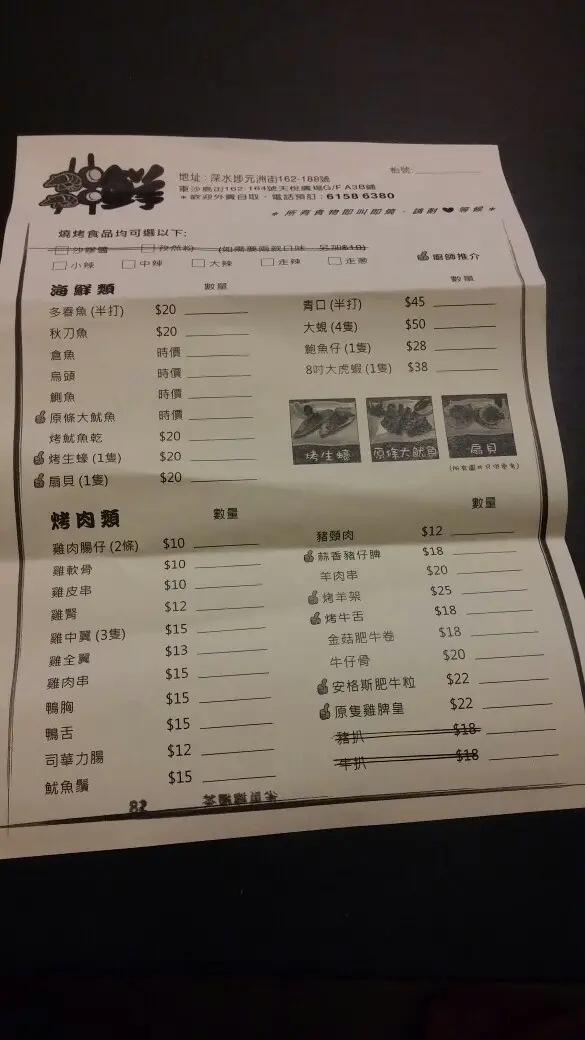 鮮
地址：深水埗元洲街162-188號
柜號:
天悅廣場G/F A3B鋪
歡迎外賣自取，電話預訂：6158 6380
* 所有食物即叫即燒，請耐❤等候 *
燒烤食品均可選以下:
□ 沙嗲醬 □ 孜然粉 (如需要兩款口味，另加$10)
□ 小辣 □ 中辣 □ 大辣 □ 走辣 □ 走蔥
廚師推介
海鮮類 數量
多春魚 (半打) $20
秋刀魚 $20
倉魚 時價
烏頭 時價
鯏魚 時價
原條大魷魚 時價
烤魷魚乾 $20
烤生蠔 (1隻) $20
扇貝 (1隻) $20
數量
青口 (半打) $45
大蜆 (4隻) $50
鮑魚仔 (1隻) $28
8吋大虎蝦 (1隻) $38
烤生蠔 原條大魷魚 扇貝
(所有圖片只供參考)
烤肉類 數量
雞肉腸仔 (2條) $10
雞軟骨 $10
雞皮串 $10
雞腎 $12
雞中翼 (3隻) $15
雞全翼 $13
雞肉串 $15
鴨胸 $15
鴨舌 $15
司華力腸 $12
魷魚鬚 $15
數量
豬頸肉 $12
蒜香豬仔脾 $18
羊肉串 $20
烤羊架 $25
烤牛舌 $18
金菇肥牛卷 $18
牛仔骨 $20
安格斯肥牛粒 $22
原隻雞脾皇 $22
豬扒 $18
牛扒 $18